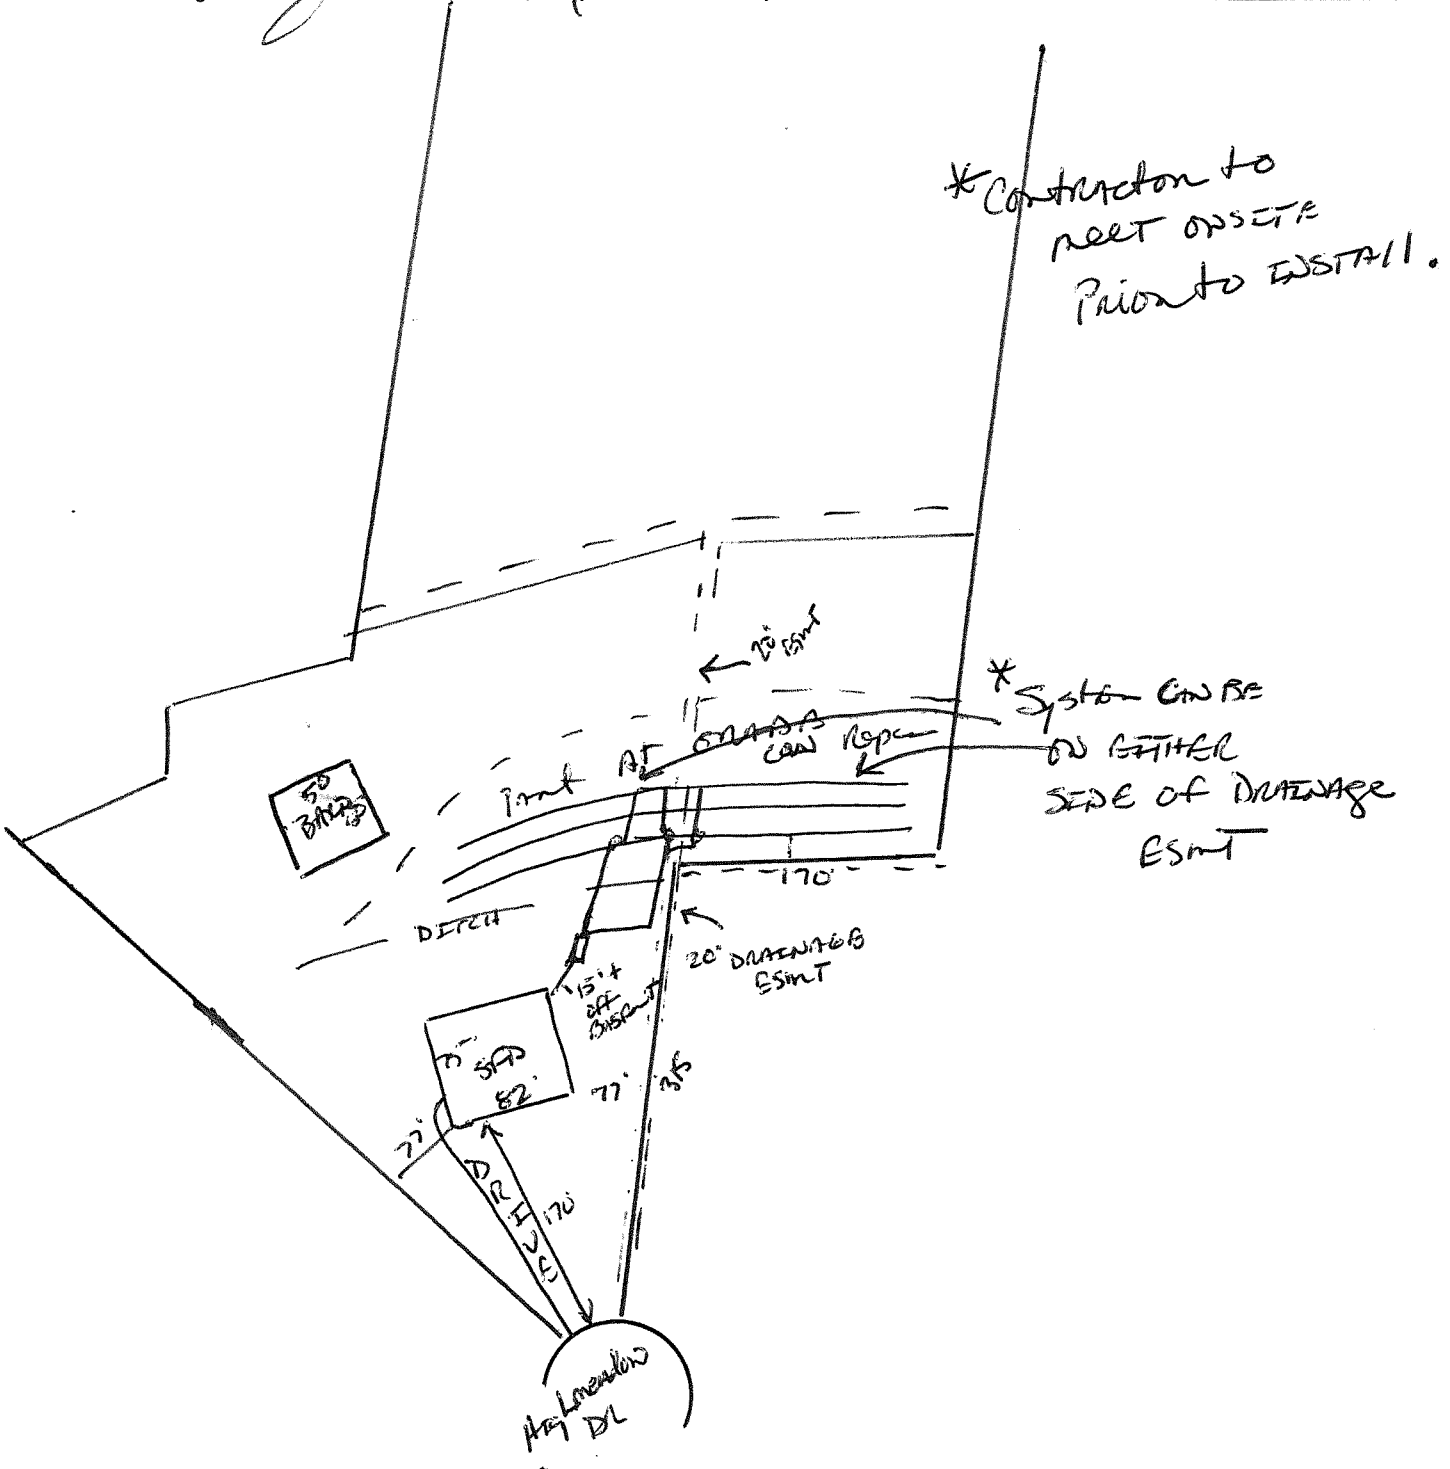 *Contractor to
meet ONSITE
Prior to INSTALL.
20' ESmT
*System CAN BE
ON EITHER
SIDE of DRAINAGE
ESmT
Repair
AT
50
DITCH
170'
20' DRAINAGE
ESmT
15'+
off
BASEmnt
75'
SFD
82'
77'
77'
DRIVE
170'
DR